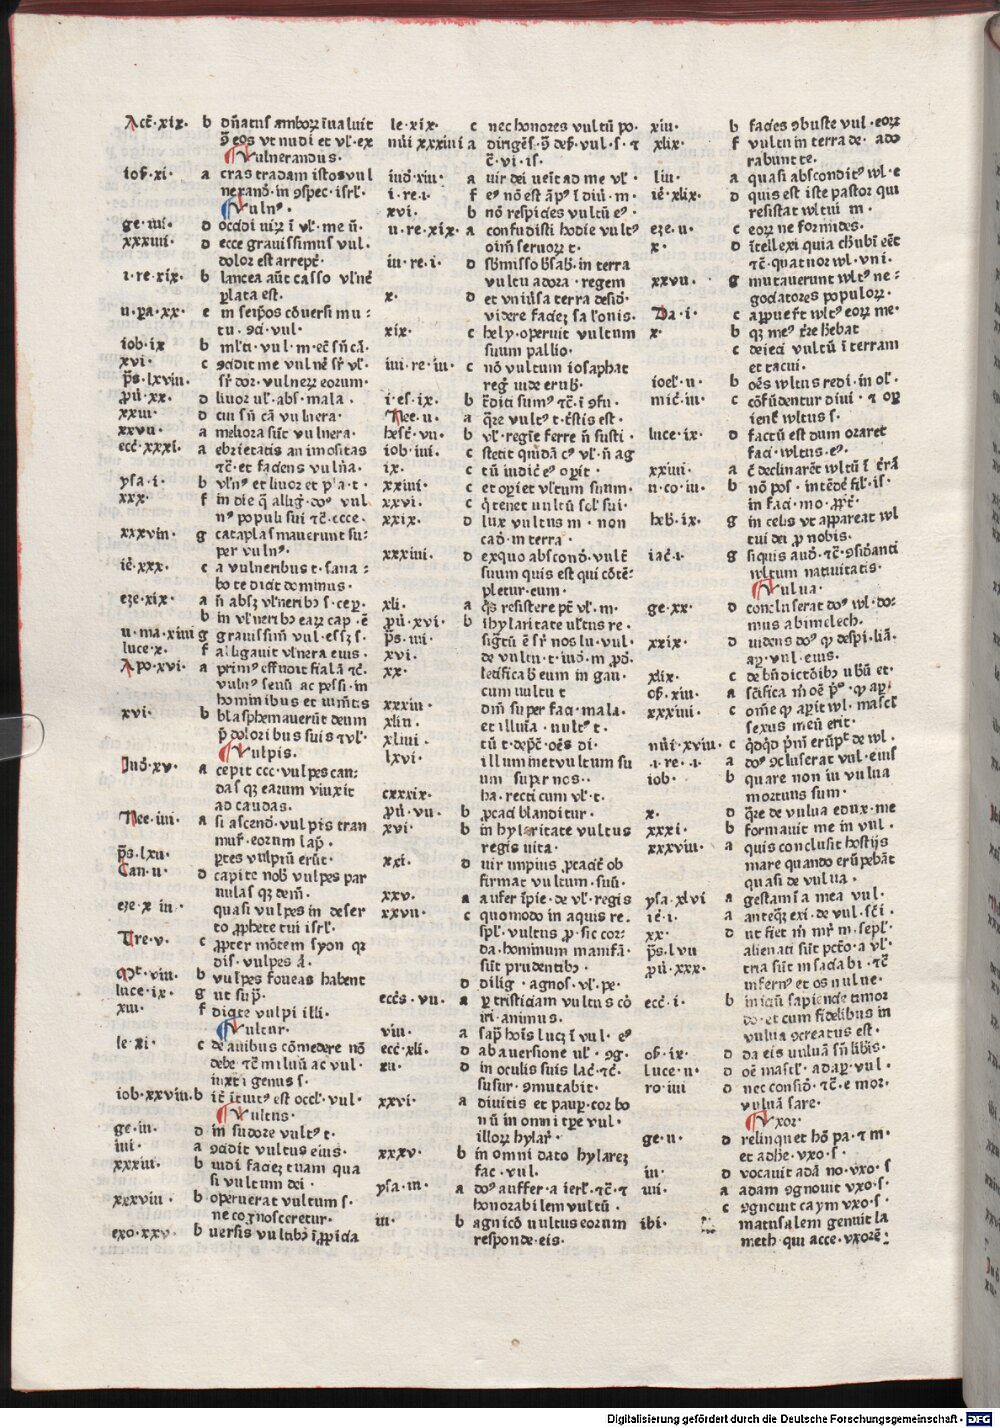 Act̄·xix· b dn̄atus amborꝝ īualuit
ꝯ̄ eos vt nudi et vl̓·ex
Vulnerandus·
iosͥ·xi· a cras tradam istos vul
nerand̓· in ꝯspec·isrl̓·
Vulnꝰ·
ge·iiii· d occidi uiꝝ ī vl̓·me ū·
xxxiiii· d ecce grauissimus vul·
dolor est arrept̓·
i·re·xix· b lancea aūt casso vl̓nē
ꝑlata est·
ii·pa·xx· e in seip̄os cōuersi mu=
tu·ꝯci·vul·
iob·ix b ml̓ti·vul·m·ec̄ sn̄ cā·
xvi· c ꝯcidit me vulnē sr̄ vl̓·
p̄s·lxviii· sr̄ dor·vulneꝝ eorum·
ꝓū·xx· d liuor ul̓·abs·mala·
xxiii· d cui sn̄ cā vulnera·
xxvii· a meliora sūt vulnera·
ecc̄·xxxi· a ebrietatis animositas
tc̄·et faciens vuln̄a·
ysa·i· b vl̓nꝰ et liuor et pla·t·
xxx· f in die q̄ allig̓·doꝰ vul
nꝰ populi sui tc̄·ecce·
xxxviii· g cataplasmauerunt su=
per vulnꝰ·
ie̓·xxx· c a vulneribus t·sana=
bo te dicit dominus·
eze·xix· a n̄ absꝫ vl̓neribꝰ s·cep·
b in vl̓neribꝰ eaꝝ cap·ē
ii·ma·xiiii g grauissim̄ vul·essꝫ s·
luce·x· f alligauit vlnera eius·
Apo·xvi· a primꝰ effudit fialā tc̄·
vulnꝰ seuū ac pessi·in
hominibus et iumētis
xvi· b blasphemauerūt deum
p̄ doloribus suis ꝛ vl̓·
Vulpis·
Iud̓·xv· a cepit ccc·vulpes can=
das qꝫ earum viuxit
ad caudas·
Nee·iiii· a si ascend̓·vulpis tran
mur̓·eorum lap̓·
p̄s·lxii· ꝑtes vulpiū erūt·
Can·ii· d capite nob̓ vulpes par
uulas qꝫ dem̄·
eze·xiii· quasi vulpes in deser
to ꝓphete tui isrl̓·
Tre·v· c ꝓpter mōtem syon qꝫ
dis·vulpes ā·
Mt̄·viii· b vulpes foueas habent
luce·ix· g ut sup̄·
xiii· f dicite vulpi illi·
Vultur·
le·xi· c de auibus cōmedere nō
debe·tc̄ miluū ac vul·
iuxti genus s·
iob·xxviii·b ic̄ ītuitꝰ est occl̓·vul·
Vultus·
ge·iii· d in sudore vultꝰ t·
iiii· a ꝯcidit vultus eius·
xxxiii· b uidi facieꝫ tuam qua
si vultum dei·
xxxviii· b operuerat vultum s·
ne cognosceretur·
exo·xxv· b uersis vultibꝰ ī ꝓpicia
le·xix· c nec honores vultū po·
nūi xxxiiii a dirigēs·ꝯ̄ des̓·vul·s·ꞇ
c̄·vi·is·
iud̓·xiii· a uir dei ueīt ad me vl̓·
i·re·i· f eꝰ nō est āpꝰ ī diū·m·
xvi· b nō respicies vultū eꝰ·
ii·re·xix· a confudisti hodie vultꝰ
oīm seruoꝝ t·
iii·re·i· d sb̄misso bs̓ab̓·in terra
vultu adora·regem
x· d et vniūsa terra desid̓·
videre facieꝫ salōnis·
xix· c hely·operuit vultum
suum pallio·
iiii·re·iii· c nō vultum iosaphat
reg̓ iude erub̓·
i·es·ix· b r̄diti sumꝰ tc̄·ī ꝯfu·
Nee·ii· a q̄re vultꝰ t·t̄stis est·
hest̓·vii· b vl̓·regīe ferre n̄ susti·
iob·iiii· c stetit qīdā cꝰ vl̓·n̄ ag
ix· c tū iudic̄ eꝰ oꝑit·
xxiiii· c et oꝑiet vl̓tum suum·
xxvi· c q̄ tenet uultū sol̓ sui·
xxix· d lux vultus m·non
cad̓·in terra·
xxxiiii· d exquo abscond̓·vult̄
suum quis est qui cōtē=
pletur·eum·
xli· a q̄s resistere pt̄ vl̓·m·
ꝓū·xvi· b ī hylaritate ul̓tus re·
p̄s·iiii· sigt̄ū ē sr̄ nos lu·vul·
xvi· de vultu·t·iud̓·m ꝓd̓·
xx· letificab̓ eum in gau·
cum uultu t
xxxiii· dn̄i super faci·mala·
xliii· et illuīa·uultꝰ t·
xliiii· tū t·dep̄c̄·oēs di·
lxvi· illuminet vultum su
um super nos··
cxxxix· ha·recti cum vl̓·t·
ꝓū·vii· b ꝓcaci blanditur·
xvi· b in hylaritate vultus
regis uita·
xxi· d uir impius ꝓcacit̓ ob
firmat vultum·suū·
xxv· a aufer īpie·de vl̓·regis
xxvii· c quomodo in aquis re·
spl̓·vultus ꝓ·sic cor=
da·hominum manifā·
sūt prudentibꝰ·
d dilig·agnos·vl̓·pe·
eccs̄·vii· a ꝑ tristiciam vultus cō
iri·animus·
viii· a sap̄ hoīs lucꝫ ī vul·eꝰ
ecc̄·xli· d ab auersione vl̓·ꝯg·
xii· d in oculis suis lac̄·tc̄·
susur·ꝯmutabit·
xxvi· a diuitis et pauꝑ·cor bo
nū in omni tp̄e vul·
illoꝝ hylar̓·
xxxv· b in omni dato hylareꝫ
fac·vul·
ysa·iii· a doꝰ auffer·a ierl̓·tc̄·ꞇ
honorabilem vultū·
iii· b agnicō uultus eorum
responde·eis·
xiii· b facies ꝯbuste vul·eoꝝ
xlix· f vultu in terra de·ado
rabunt te·
liii· a quasi absconditꝰ wl·e
ie̓·xlix· d quis est iste pastor qui
resistat wltui m·
eze·ii· c eoꝝ ne formides·
x· d ītellexi quia ch̓ubī eēt
tc̄·quatuor wl·vni·
xxvii· g mutauerunt wltꝰ ne=
gociatores populoꝝ·
Da·i· c aꝑuer̄t wltꝰ eoꝝ me·
x· b qꝫ meꝰ t̄re h̓ebat
c deieci vultū ī terram
et tacui·
ioel̓·ii· b oēs wltus redi·in ol̓·
mic̄·iii· c cōfūdentur diui·ꞇ oꝑ
ient̄ wltus s·
luce·ix· d factū est dum oraret
faci·wltus·eꝰ·
xxiiii· a c̄ declinarēt wltū ī t̄rā
ii·co·iii· b nō pos·intēd̄e fil̓·is·
in faci·mo·ꝓpt̄·
heb̓·ix· g in celis vt appareat wl
tui dei ꝓ nobis·
iac̄·i· g si quis aud̓·tc̄·ꝯsid̓anti
wltum natiuitatis·
Vulua·
ge·xx· d concluserat doꝰ wl·do=
mus abimelech·
xxix· d uidens doꝰ qꝫ despi·liā·
aꝑ·vul·eius·
xlix· c de bn̄dictōibꝰ ub̓ū et·
os̄·xiii· a sc̄ifica m̄ oē p̄ꝰ·qꝫ aꝑ̓
xxxiiii· c om̄e qꝫ aꝑit wl·mascl̓
sexus meū erit·
nūi·xviii· c q̄dqd̄ p̄m̄ erūp̄t̄ de wl·
i·re·i· a doꝰ ꝯcluserat vul·eius
iob· b quare non in vulua
mortuus sum·
x· d q̄re de vulua edux·me
xxxi· b formauit me in vul·
xxxviii· a quis conclusit hostijs
mare quando erūpebāt
quasi de vulua·
ysa·xlvi a gestamī a mea vul·
ie̓·i· a anteqꝫ exi·de vul·sc̄i·
xx· d ut fiet m̄ mr̄ m·sepl̓·
p̄s·lvii alienati sūt pctō·a vl̓·
ꝓū·xxx· tria sūt insaciabi·tc̄
infernꝰ et os uulue·
ecc̄·i· b iniciū sapiencie timor
do·et cum fidelibus in
vulua ꝯcreatus est·
os̄·ix· d da eis uuluā sn̄ lib̓is·
luce·ii· d oē mascl̓·adaꝑ·vul·
ro·iiii d nec consid̓·tc̄·emor·
vuluā sare·
Vxor·
ge·ii· d relinquet hō pa·ꞇ m·
et adhe·vxo·s·
iii· d vocauit adā no·vxo·s
iiii· a adam ꝯgnouit vxo·s·
c ꝯgnouit caym vxo·s·
ibi· matusalem genuit la
meth qui acce·vxorē:
Digitalisierung gefördert durch die Deutsche Forschungsgemeinschaft - DFG